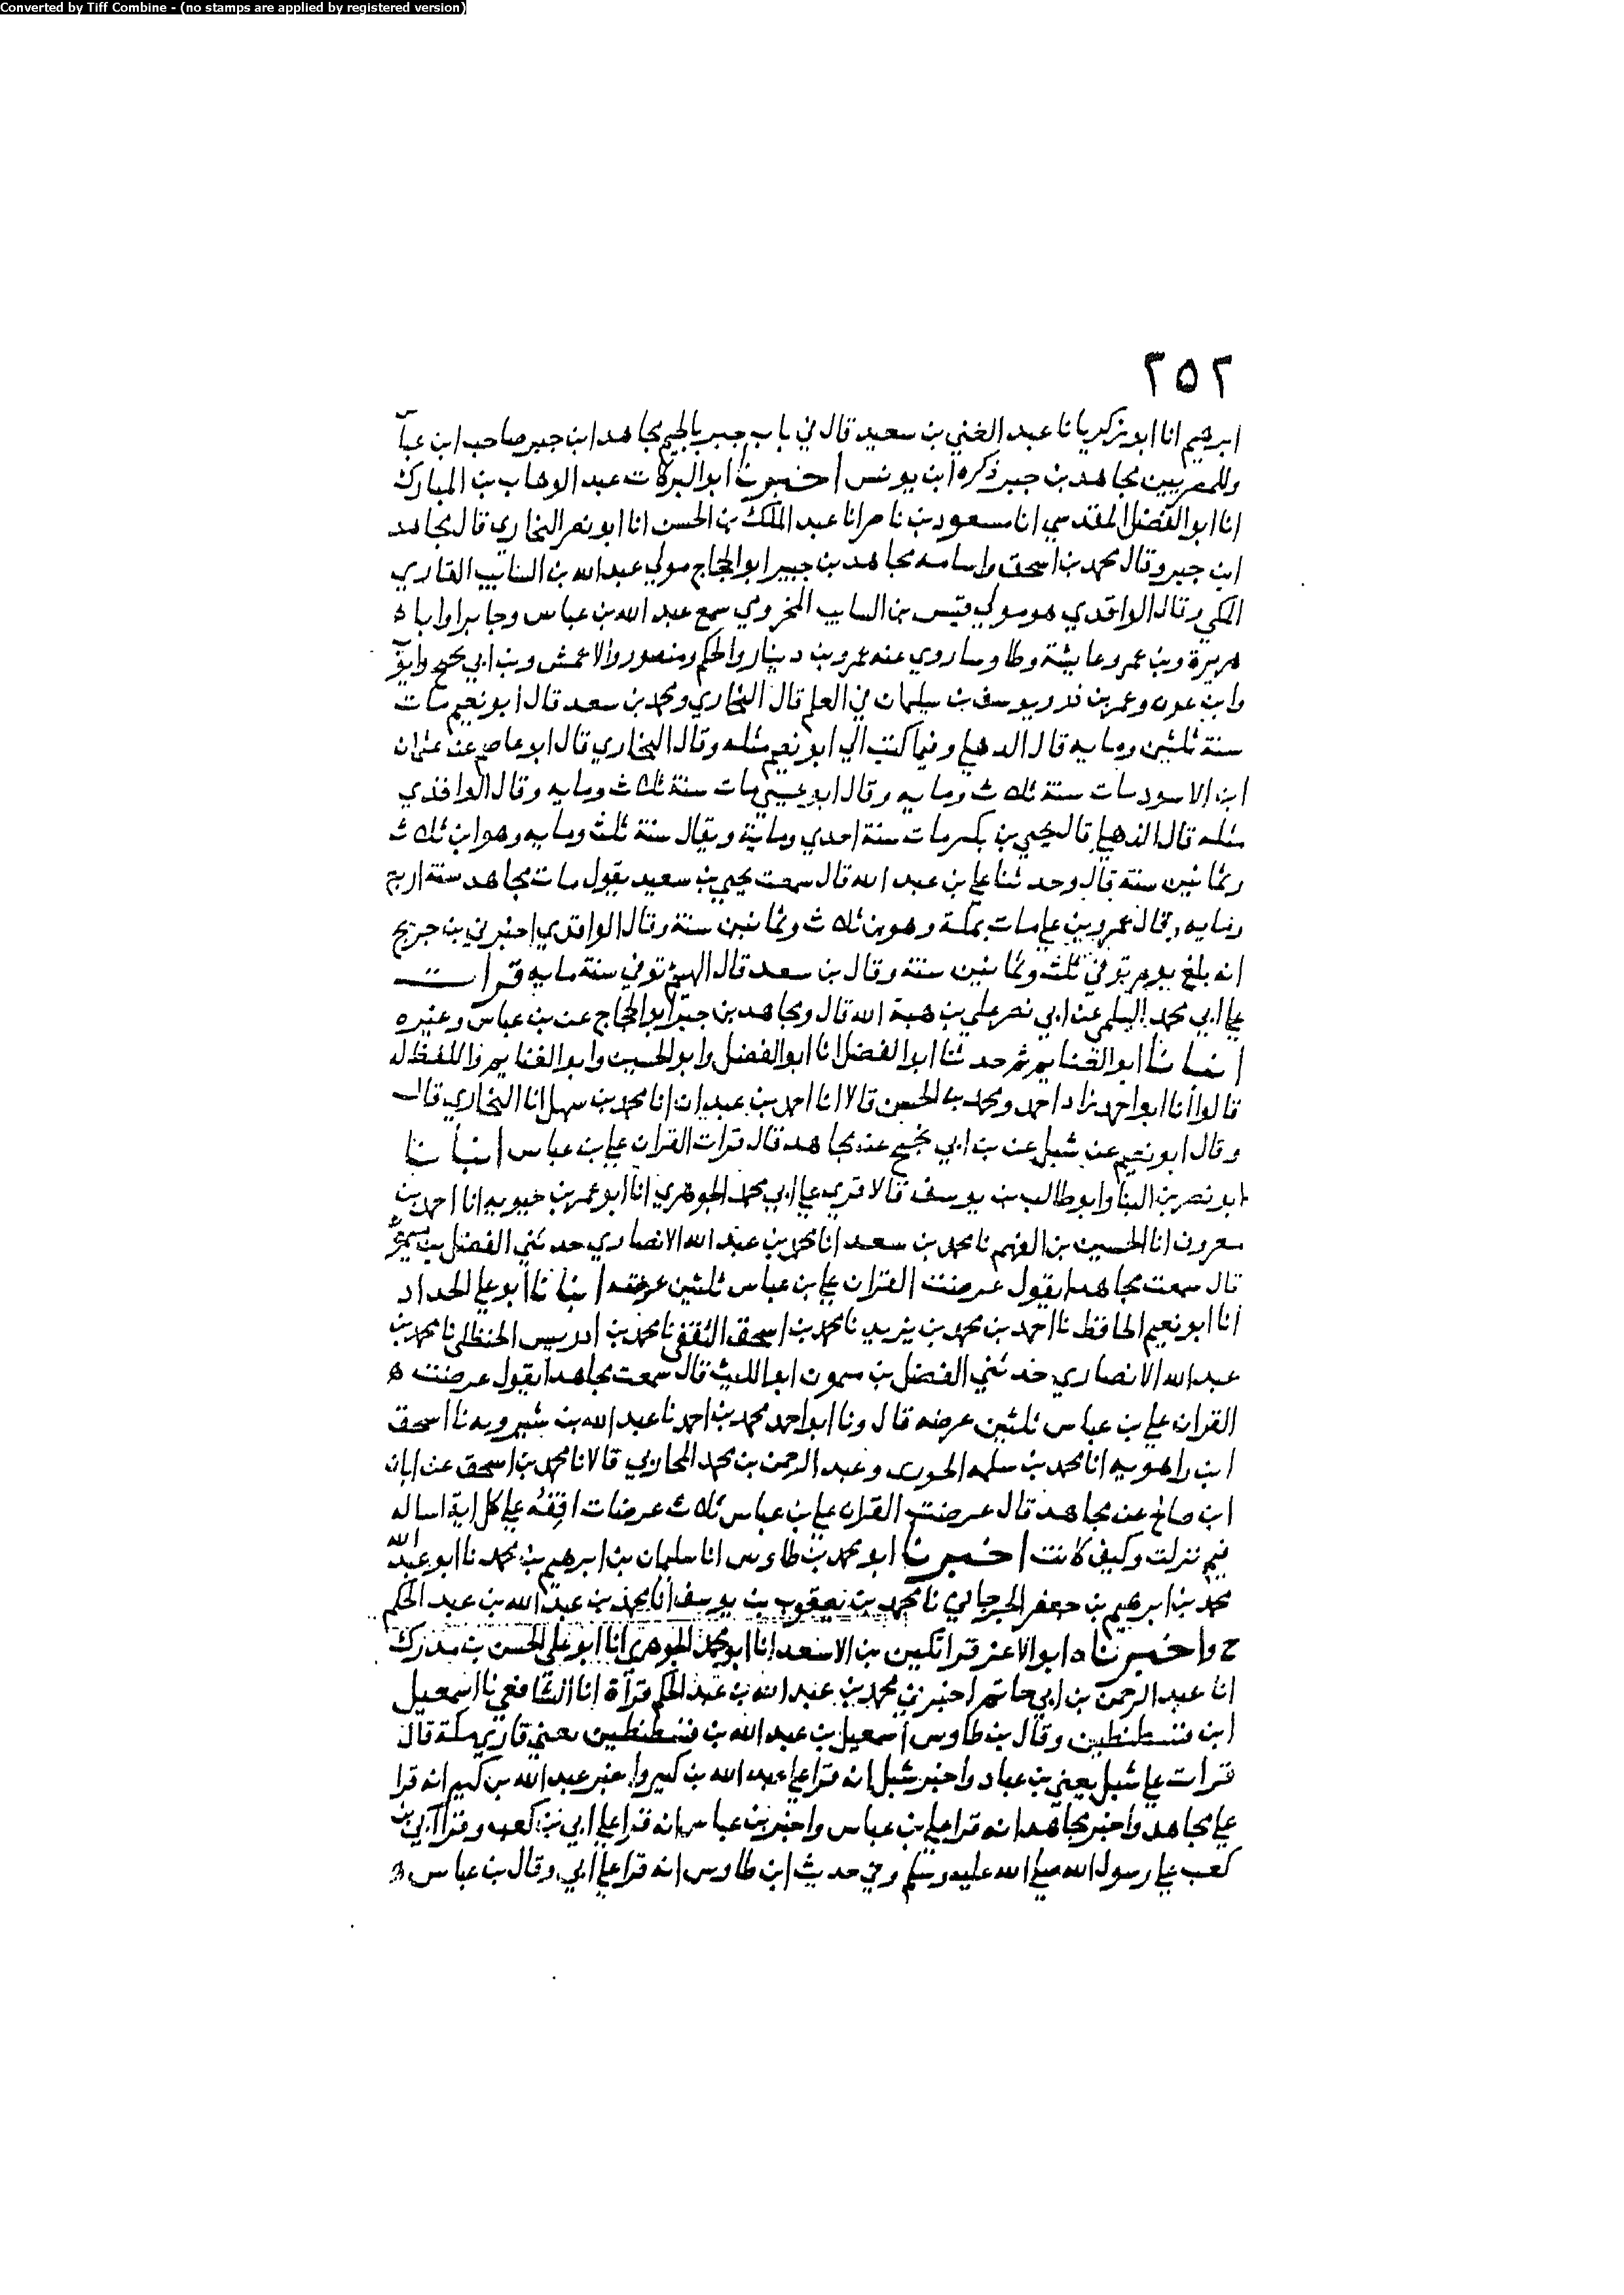 Converted by Tiff Combine - (no stamps are applied by registered version)
٢٥٢
ابرهيم انا ابو زكريا نا عبد الغني بن سعيد قال في باب جبر بالجيم مجاهد ابن جبر صاحب ابن عباس
وللمصريين مجاهد بن جبر ذكره ابن يونس اخبرنا ابو البركات عبد الوهاب بن المبارك
انا ابو الفضل المقدسي انا مسعود بن ناصر انا عبد الملك بن الحسن انا ابو نصر البخاري قال مجاهد
ابن جبر وقال محمد بن اسحق واسامه مجاهد بن جبير ابو الحجاج مولي عبد الله بن السايب القاري
المكي وقال الواقدي هو مولي قيس بن السايب المخزومي سمع عبد الله بن عباس وجابرا وابا ه
هريرة وبن عمر وعايشة وطاوسا روي عنه عمرو بن دينار والحكم ومنصور والاعمش وبن ابي نجيح وايوب
وابن عون وعمر بن ذر ويوسف بن سليمان في العلم قال البخاري ومحمد بن سعد قال ابو نعيم مات
سنة ثلثين ومايه قال الذهلي وفيما كتب الي ابو نعيم مثله وقال البخاري قال ابو عاصم عن عثمان
ابن الاسود مات سنة ثلاث ومايه وقال ابو عيسي مات سنة ثلاث ومايه وقال الواقدي
مثله قال الذهلي قال يحيي بن بكير مات سنة احدي وماية ويقال سنة ثلث ومايه وهو ابن ثلاث
وثمانين سنة قال وحدثنا علي بن عبد الله قال سمعت يحيي بن سعيد يقول مات مجاهد سنة اربع
ومايه وقال عمرو بن علي مات بمكة وهو بن ثلاث وثمانين سنة وقال الواقدي اخبرني بن جريج
انه بلغ يوم توفي ثلث وثمانين سنة وقال بن سعد قال الهيثم توفي سنة مايه قرات
علي ابي محمد السلمي عن ابي نصر علي بن هبة الله قال ومجاهد بن جبر ابو الحجاج عن بن عباس وغيره
انبانا ابو الغنايم ثم حدثنا ابو الفضل انا ابو الفضل وابو الحسين وابو الغنايم واللفظ له
قالوا انا ابو احمد زاد احمد ومحمد بن الحسن قالا انا احمد بن عبدان انا محمد بن سهل انا البخاري قال
وقال ابو نعيم عن شبل عن بن ابي نجيح عن مجاهد قال قرات القران علي بن عباس انبانا
ابو نصر بن البنا وابو طالب بن يوسف قالا قري علي ابي محمد الجوهري انا ابو عمر بن حيويه انا احمد بن
معروف انا الحسين بن الفهم نا محمد بن سعد انا محمد بن عبد الله الانصاري حدثني الفضل بن ميمون
قال سمعت مجاهدا يقول عرضت القران علي بن عباس ثلثين عرضه انبانا ابو علي الحداد
انا ابو نعيم الحافظ نا احمد بن محمد بن يزيد نا محمد بن اسحق الثقفي نا محمد بن ادريس الحنظلي نا محمد بن
عبد الله الانصاري حدثني الفضل بن ميمون ابو الليث قال سمعت مجاهدا يقول عرضت ه
القران علي بن عباس ثلثين عرضه قال ونا ابو احمد محمد بن احمد نا عبد الله بن شيرويه نا اسحق
ابن راهويه انا محمد بن سلمه الحوري وعبد الرحمن بن محمد المحاربي قالا نا محمد بن اسحق عن ابان
ابن صالح عن مجاهد قال عرضت القران علي بن عباس ثلاث عرضات اقفه علي كل اية اساله
فيم نزلت وكيف كانت اخبرنا ابو محمد بن طاوس انا سليمان بن ابرهيم بن محمد نا ابو عبد الله
محمد بن ابرهيم بن جعفر الجرجاني نا محمد بن يعقوب بن يوسف انا محمد بن عبد الله بن عبد الحكم
ح واخبرناه ابو الاعز قراتكين بن الاسعد انا ابو محمد الجوهري انا ابو علي الحسن بن مدرك
انا عبد الرحمن بن ابي حاتم اخبرني محمد بن عبد الله بن عبد الحكم قرآة انا الشافعي نا اسمعيل
ابن قسطنطين وقال بن طاوس اسمعيل بن عبد الله بن قسطنطين يعني قاري مكة قال
قرات علي شبل يعني بن عباد واخبر شبل انه قرا علي عبد الله بن كثير واخبر عبد الله بن كثير انه قرا
علي مجاهد واخبر مجاهد انه قرا علي بن عباس واخبر بن عباس انه قرا علي ابي بن كعب وقرا ابي بن
كعب علي رسول الله صلي الله عليه وسلم وفي حديث ابن طاوس انه قرا علي ابي وقال بن عباس ه